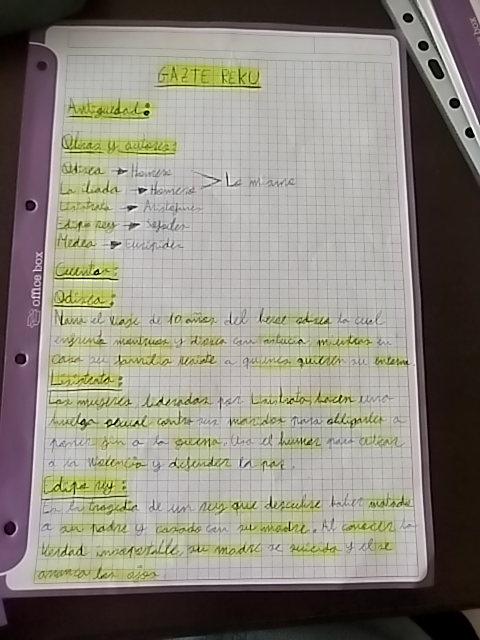 GAZTE REKU
Antiguedad:
Obras y autores:
Odisea → Homero
La iliada → Homero > Lo mismo
Lisistrata → Aristofanes
Edipo rey → Sofocles
Medea → Euripides
Cuentos:
Odisea:
Narra el viaje de 10 años del heroe odisea la cual
enfrenta monstruos y dioses con astucia, mientras en
casa su familia resiste a quienes quieren su
Lisistrata:
Las mujeres, lideradas por Lisistrata, hacen una
huelga sexual contra sus maridos para obligarles a
poner fin a la guerra. Usa el humor para criticar
a la violencia y defender la paz.
Edipo rey:
Es la tragedia de un rey que descubre haber matado
a su padre y casado con su madre. Al conocer la
verdad insoportable, su madre se suicida y el se
arranca los ojos.
office box